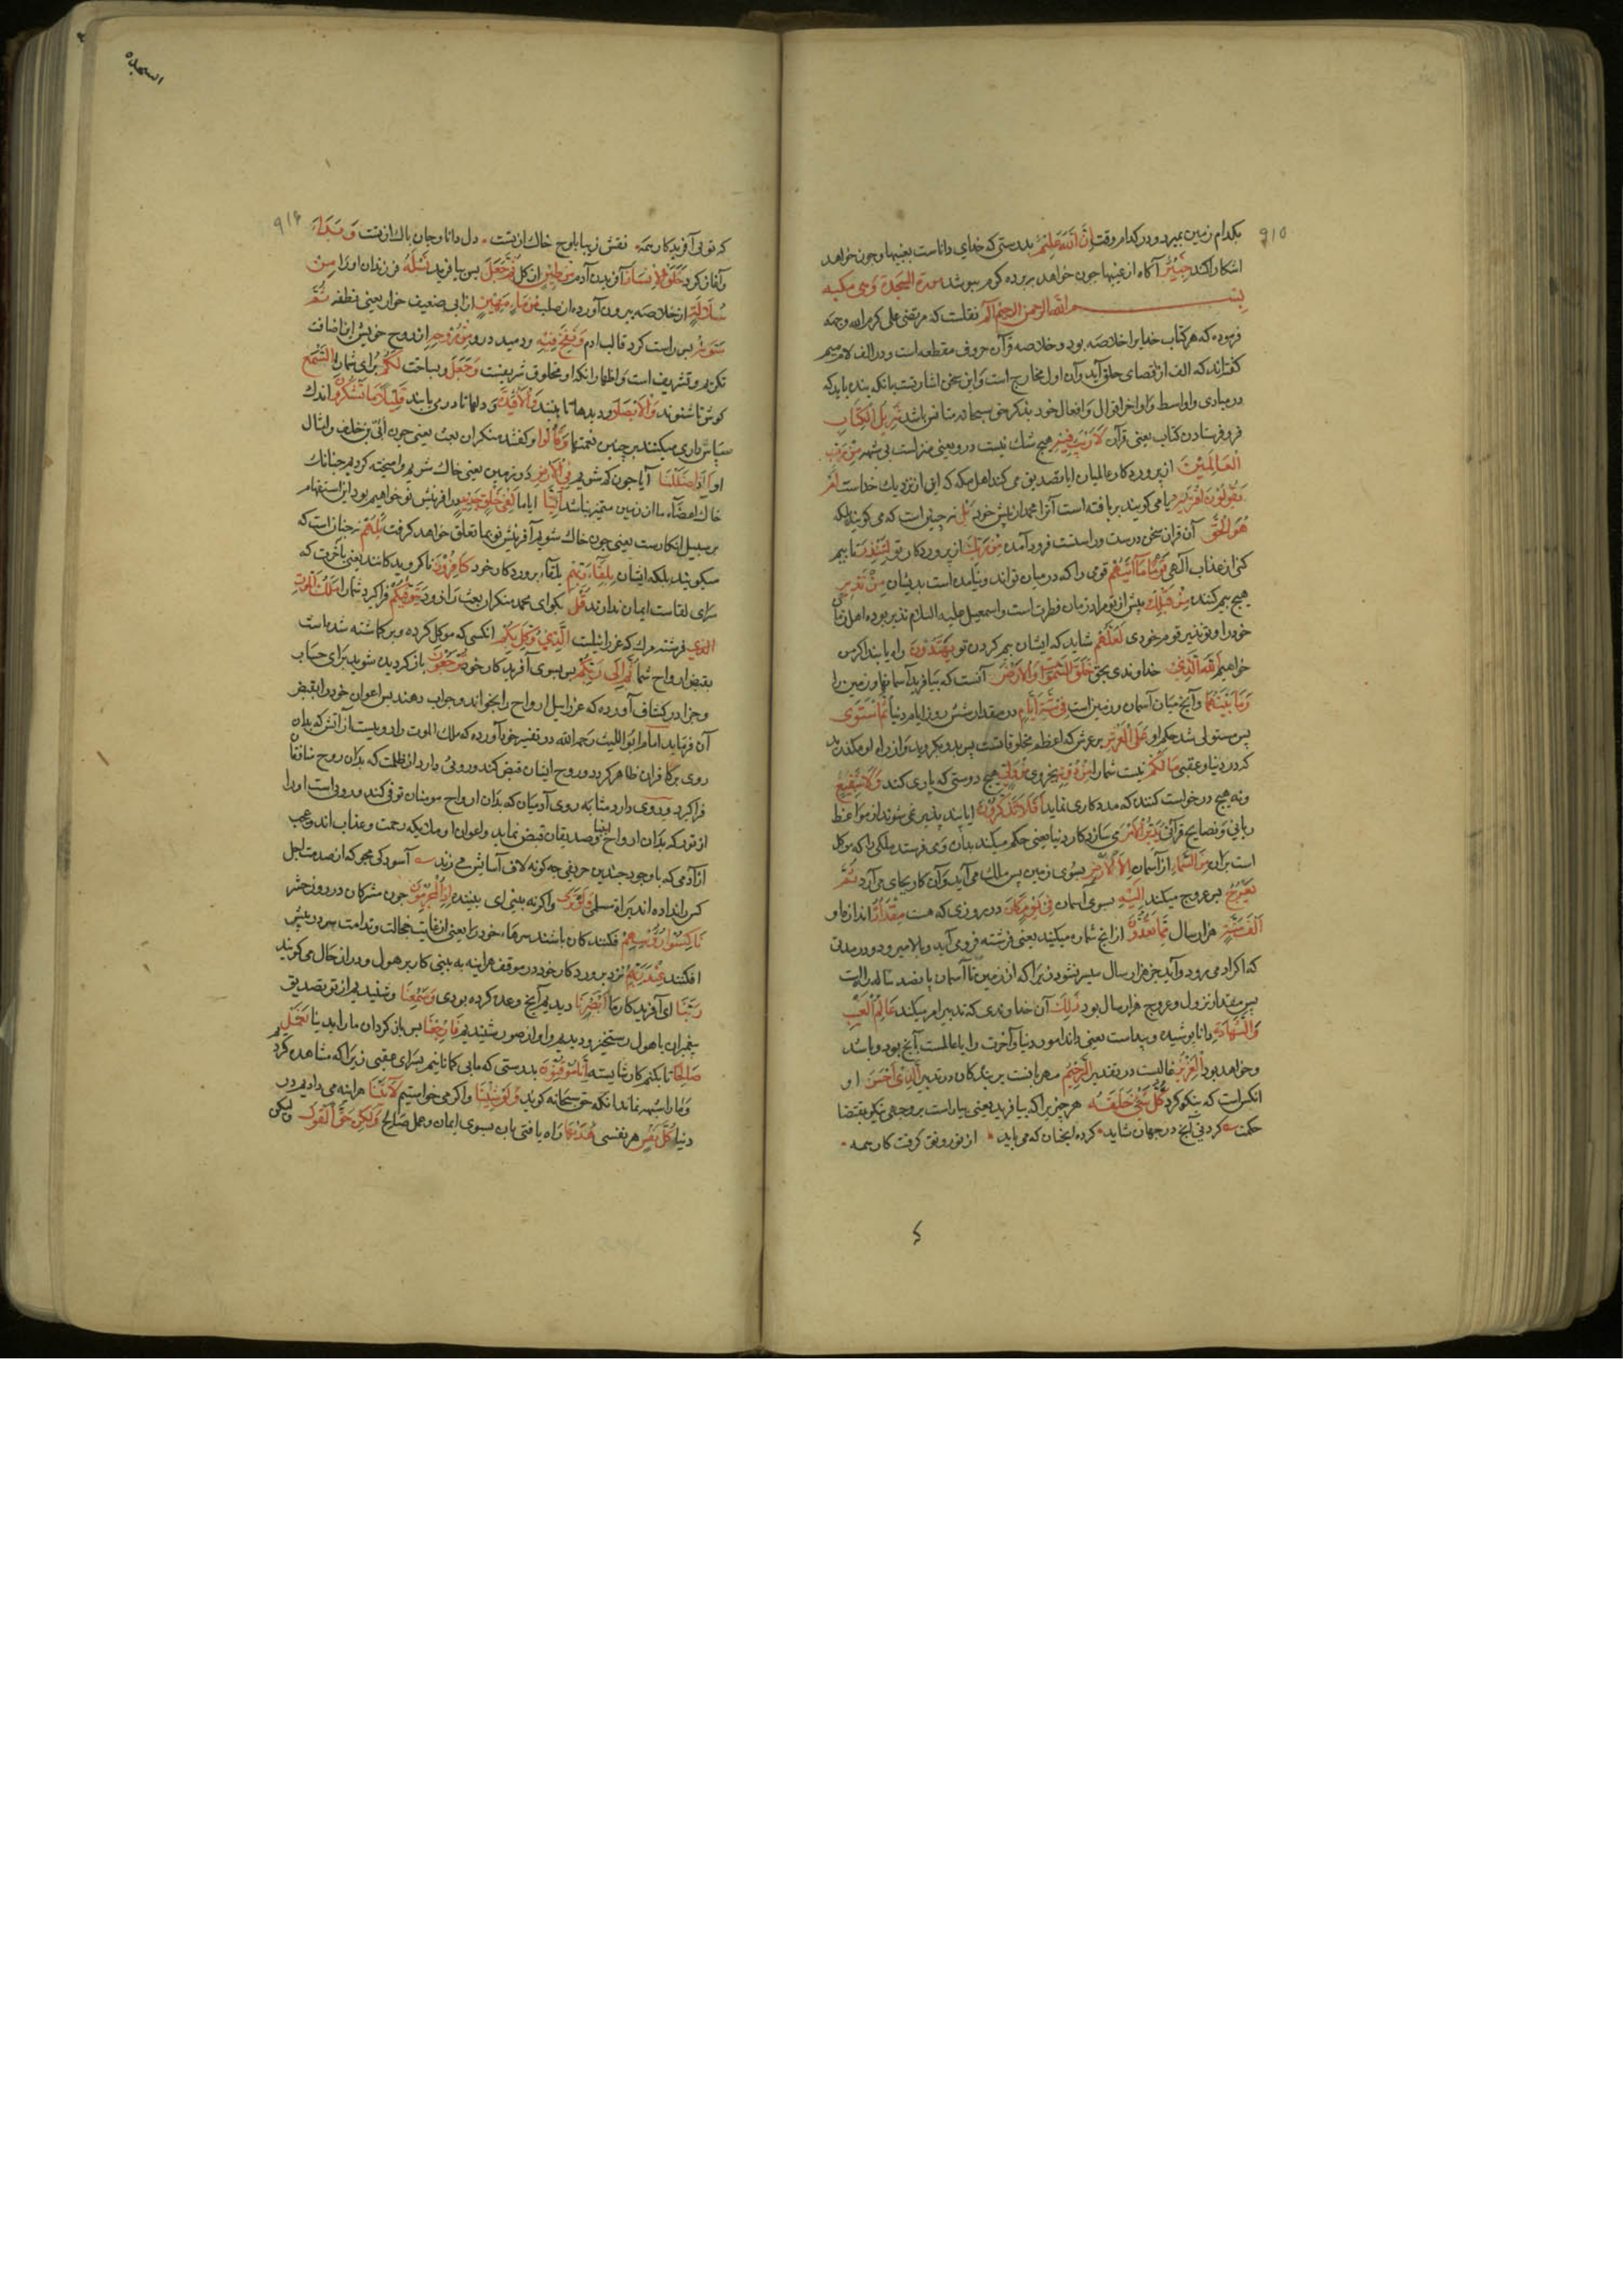 ۹۱۵
بکدام زمین بمیرد و در کدام وقت اِنَّ اللّٰهَ عَلِیْمٌ بدرستی که خدای داناست بغیبها و چون خواهد
اشکارا کند خَبِیْرٌ آکاه از غیبها چون خواهد بر برده کرم ببوشد سورة السجدة وهی مکیه
بِسْمِ اللّٰه الرحمن الرحیم الٓمٓ نقلست که مرتضی علی کرم الله وجهه
فرموده که هر کتاب خدایرا خلاصه بود و خلاصه قرآن حروف مقطعه است و در الف لام میم
کفته‌اند که الف از اقصای حلق آید و آن اول مخارج است و این سخن اشارتست بانکه بنده باید که
در مبادی و اواسط و اواخر اقوال و افعال خود بذکر حق سبحانه مستانس باشد تَنْزِیْلُ الْکِتَابِ
فرو فرستادن کتاب یعنی قرآن لَارَیْبَ فِیْهِ هیچ شک نیست درو یعنی منزلست بی شبهه مِنْ رَبِّ
الْعَالَمِیْنَ از پروردکار عالمیان ایا تصدیق می کنند اهل مکه که این از نزدیک خداست اَمْ
یَقُوْلُوْنَ افْتَرٰیهُ یا می کویند بر بافته است آنرا محمد از پیش خود بَلْ نه چنین است که می کویند بلکه
هُوَ الْحَقُّ آن قران سخن درست و راستست فرود آمده مِنْ رَبِّکَ از پروردکار تو لِتُنْذِرَ تا بیم
کنی از عذاب آلهی قَوْمًا مَا اَتٰیهُمْ قومی را که در میان تو اند و نیامده است بدیشان مِنْ نَذِیْرٍ
هیچ بیم کننده مِنْ قَبْلِکَ پیش از تو مراد زمان فطرت است و اسمعیل علیه السلام نذیر بوده اهل زمان
خود را و تو نذیر قوم خودی لَعَلَّهُمْ شاید که ایشان بیم کردن تو یَهْتَدُوْنَ راه یابند اکر من
خواهم اَللّٰهُ الَّذِیْ خداوندی بحق خَلَقَ السَّمٰوٰاتِ وَالْاَرْضَ آنست که بیافرید آسمانها و زمین را
وَمَا بَیْنَهُمَا و آنچ میان آسمان و زمین است فِیْ سِتَّةِ اَیَّامٍ در مقدار شش روز ایام دنیا ثُمَّ اسْتَوٰی
پس مستولی شد حکم او عَلَی الْعَرْشِ بر عرش که اعظم مخلوقاتست پس بدو بکروید و از راه او مکذرید
که در دنیا و عقبی مَا لَکُمْ نیست شمارا مِنْ دُوْنِهٖ بجز وی مِنْ وَلِیٍّ هیچ دوستی که یاری کند وَلَا شَفِیْعٍ
و نه هیچ درخواست کنند که مددکاری نماید اَفَلَا تَتَذَکَّرُوْنَ ایا پند پذیر نمی شوند از مواعظ
ربانی و نصایح قرآنی یُدَبِّرُ الْاَمْرَ می سازد کار دنیا یعنی حکم میکند بدان و می فرستد ملکی را که موکل
است بران مِنَ السَّمَاءِ از آسمان اِلَی الْاَرْضِ بسوی زمین پس ملک می آید و آن کار بجای می آرد ثُمَّ
یَعْرُجُ پس عروج میکند اِلَیْهِ بسوی آسمان فِیْ یَوْمٍ کَانَ در روزی که هست مِقْدَارُهٗ اندازه او
اَلْفَ سَنَةٍ هزار سال مِمَّا تَعُدُّوْنَ از انچ شماره میکنید یعنی فرشته فرومی آید و بالا میرود در مدتی
که اکر ادمی رود و آید جز هزار سال میسر نشود زیرا که از زمین تا آسمان پانصد ساله راه است
پس مقدار نزول و عروج هزار سال بود ذٰلِکَ آن خداوندی که تدبیر امر میکند عَالِمُ الْغَیْبِ
وَالشَّهَادَةِ دانا پوشیده و پیداست یعنی داند امور دنیا و آخرت را یا عالمست آنچ بود و باشد
و خواهد بود الْعَزِیْزُ غالبست در تقدیر الرَّحِیْمُ مهربانست بر بندکان در تدبیر الَّذِیْ اَحْسَنَ او
انکس است که نیکو کرد کُلَّ شَیْءٍ خَلَقَهٗ هر چیز را که بیافرید یعنی بیاراست بر وجهی نیکو بمقتضا
حکمت کردنی آنچ در جهان شاید کرده آنچنان که می باید از تو رونق کرفت کار همه
السجده
۹۱۶
که تویی آفریدکار همه نقش زیبا بلوح خاک از تست دل دانا و جان پاک از تست وَبَدَاَ
و آغاز کرد خَلْقَ الْاِنْسَانِ آفریدن آدم مِنْ طِیْنٍ از کل ثُمَّ جَعَلَ پس بیافرید نَسْلَهٗ فرزندان او را مِنْ
سُلَالَةٍ از خلاصه بیرون آورده از صلب مِنْ مَاءٍ مَهِیْنٍ از ابی ضعیف خوار یعنی نطفه ثُمَّ
سَوّٰیهُ پس راست کرد قالب ادم وَنَفَخَ فِیْهِ و دمید درو مِنْ رُوْحِهٖ از روح خویش این اضافت
تکریم و تشریف است و اظهار انکه او مخلوق شریفست وَجَعَلَ و بساخت لَکُمْ برای شما السَّمْعَ
کوش تا شنوند وَالْاَبْصَارَ و دیدها تا بینند وَالْاَفْئِدَةَ و دلها تا در می یابند قَلِیْلًا مَا تَشْکُرُوْنَ اندک
سپاس‌داری میکنند بر چنین نعمتها وَقَالُوْا و کفتند منکران بعث یعنی چون أبیّ بن خلف و امثال
او ءَاِذَا ضَلَلْنَا آیا چون کم شویم فِی الْاَرْضِ در زمین یعنی خاک شویم و آمیخته کردیم چنانک
خاک اعضاء ما از زمین متمیز نباشد ءَاِنَّا ایا ما لَفِیْ خَلْقٍ جَدِیْدٍ در آفرینش نو خواهیم بود این استفهام
بر سبیل انکارست یعنی چون خاک شویم آفرینش نو بما تعلق نخواهد کرفت بَلْ هُمْ نه چنانست که
میکویند بلکه ایشان بِلِقَاءِ رَبِّهِمْ بلقاء پروردکار خود کَافِرُوْنَ ناکرویدکانند یعنی باخرت که
سرای لقاست ایمان ندارند قُلْ بکو ای محمد منکران بعث را زود یَتَوَفّٰیکُمْ فراکیرد شمارا مَلَکُ الْمَوْتِ
الذی فرشته مرک که عزرائیلست الَّذِیْ وُکِّلَ بِکُمْ انکسی که موکل کرده و برکماشته شده است
بقبض ارواح شما ثُمَّ اِلٰی رَبِّکُمْ پس بسوی آفریدکار خود تُرْجَعُوْنَ بازکردیده شوید برای حساب
و جزا در کشاف آورده که عزرائیل ارواح را بخواند و جواب دهند پس اعوان خود را بقبض
آن فرماید امام ابو اللیث رحمه الله در تفسیر خود آورده که ملک الموت را
روی بر کافران ظاهر کرده و روح ایشان قبض کند و رویی دارد از ظلمت که بدان روح منافقان
فراکیرد و روی دارد مشابه روی آدمیان که بدان ارواح مومنان توفی کند و رویی است او را
از نور که بدان ارواح انبیا و صدیقان قبض نماید و اعوان او ملائکه رحمت و عذاب اند و عجب
از آدمی که با وجود چندین حریفی چه کونه لاف آسایش می زند آسودکی مجوی که از صدمت اجل
کس را نداده اند برات مسلمی وَلَوْ تَرٰی و اکر به بینی ای بیننده اِذِ الْمُجْرِمُوْنَ چون مشرکان در روز حشر
نَاکِسُوْا رُءُوْسِهِمْ فکنندکان باشند سرهاء خود را یعنی از غایت خجالت و ندامت سر در پیش
افکنند عِنْدَ رَبِّهِمْ نزد پروردکار خود در موقف هراینه به بینی کار پر هول و در ان حال می کویند
رَبَّنَا ای آفریدکار ما اَبْصَرْنَا دیدیم آنچ وعده کرده بودی وَسَمِعْنَا و شنیدیم از تو تصدیق
پیغمبران یا هول رستخیز دیدیم و اواز صور شنیدیم فَارْجِعْنَا پس بازکردان مارا بدنیا نَعْمَلْ
صَالِحًا تا بکنیم کار شایسته اِنَّا مُوْقِنُوْنَ بدرستی که مابی کمانانیم بسرای عقبی زیرا که مشاهده کرد
و مارا شبهه نماند انکه حق سبحانه کوید وَلَوْ شِئْنَا و اکر می خواستیم لَاٰتَیْنَا هراینه می دادیم در
دنیا کُلَّ نَفْسٍ هر نفسی هُدٰیهَا راه یافتن بان بسوی ایمان و عمل صالح وَلٰکِنْ حَقَّ الْقَوْلُ ولیکن